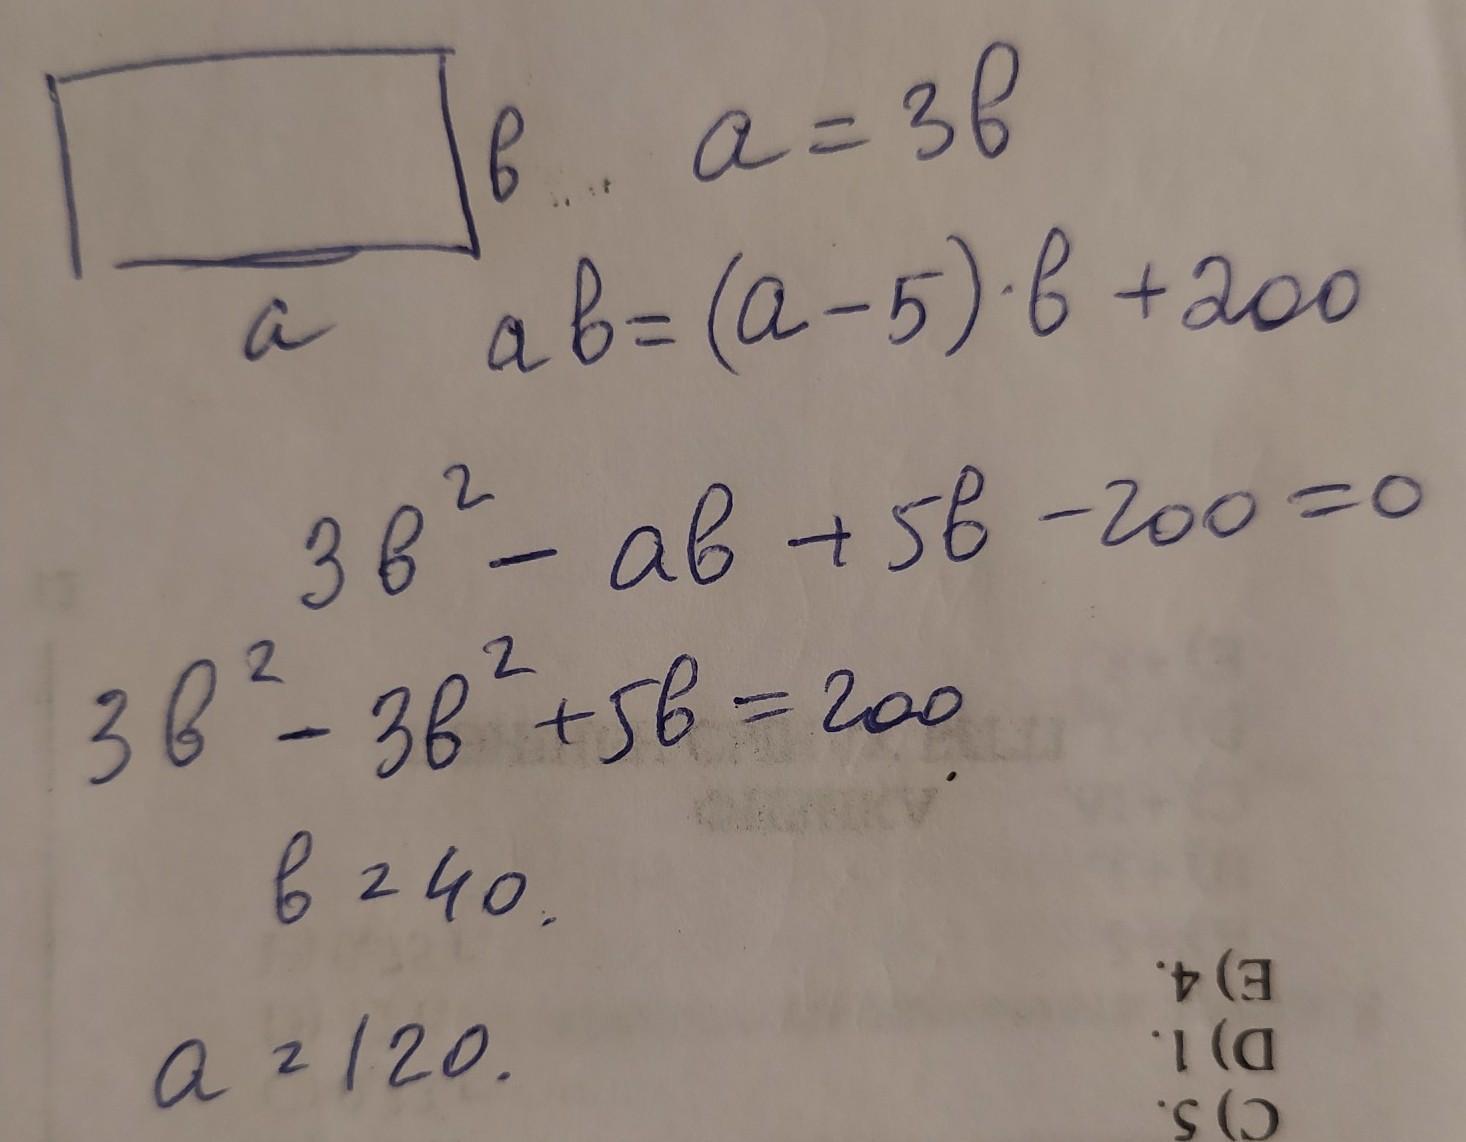 в a = 3в
a
aв = (a - 5) · в + 200
3в² - aв + 5в - 200 = 0
3в² - 3в² + 5в = 200
в = 40.
a = 120.
E) 4.
D) 1.
C) 5.